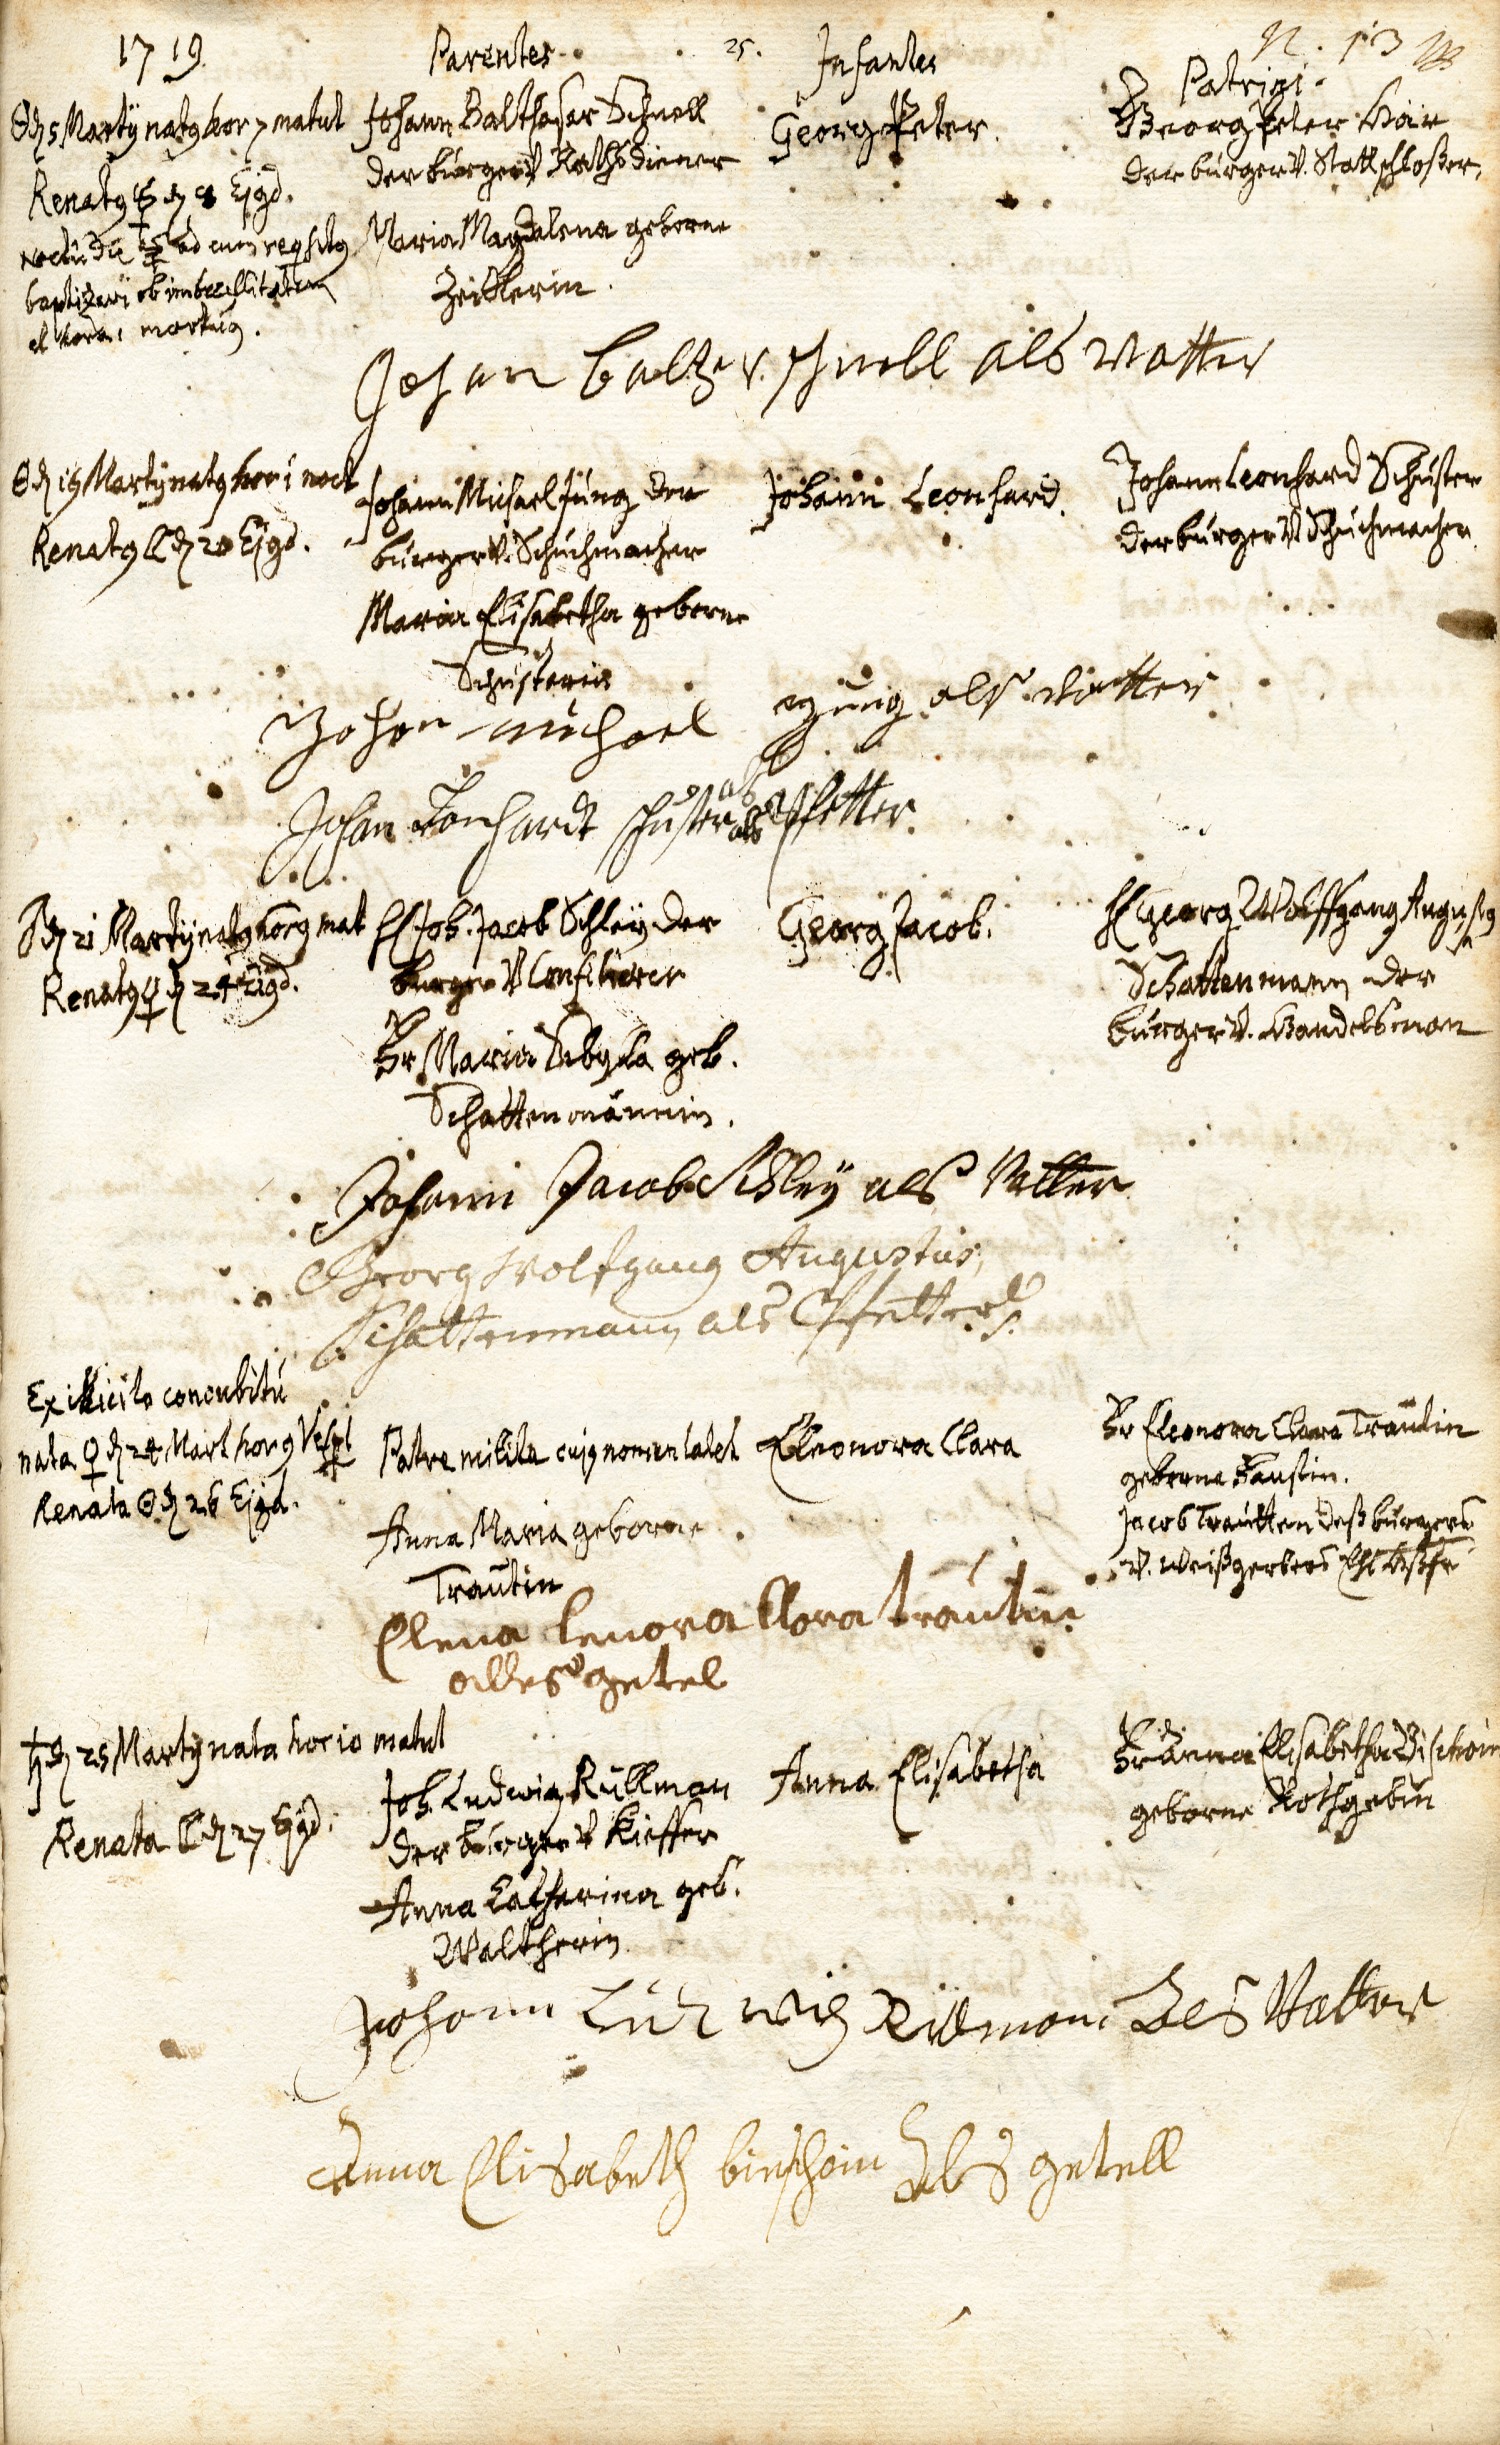 1719.
Parentes.
25.
Infantes
N. 13
Patrini.
☉ d 5 Martÿ natq hor 7 matut
Renatq d 8 Ejqd.
baptizari ob imbecillitatem
et hora 1 mortuq.
Johann Balthasar Schnell
der burger v Rathsdiener
Maria Magdalena geborne
Zeitlerin.
Georg Peter.
Georg Peter Bär
der burger v. Stattschloßer,
Johan baltzer schnell als Vatter
☉ d 19 Martÿ natq hor 1 noct
Renatq ☾ d 20 Ejqd.
Johann Michael Jung der
burger v. Schuchmacher
Maria Elisabetha geborne
Schusterin
Johann Leonhard.
Johann Leonhard Schuster
der burger v Schuchmacher.
Johan michael gung als vatter
Johan Lonhardt schuster als Pfetter.
♂ d 21 Martÿ natq hor 9 mat
Renatq ♀ d 24 Ejqd.
H Joh. Jacob Schleÿ der
burger v Confitirer
Fr Maria Sibyla geb.
Schattenmännin.
Georg Jacob.
H Georg Wolffgang Augustq
Schattenmann der
burger v. Handelsman
Johann Jacob Schleÿ als Vatter
Georg Wolfgang Augustus,
Schattenmann als Pfetter.
Ex illicito concubitu
nata ♀ d 24 Mart hor 9 Vesp
Renata ☉ d 26 Ejqd.
Patre milite cujq nomen latet
Anna Maria geborne
Trautin
Eleonora Clara
Fr Eleonora Clara Trautin
geborne Faustin.
Jacob Trautten deß burgers
v. Weißgerbers Ehl. Hßfr
Elena Lenora Clora trautin
alles getel
♄ d 25 Martÿ nata hor 10 matut
Renata ☾ d 27 Ejqd.
Joh. Ludwig Rullman
der burger v Kieffer
Anna Catharina geb.
Waltherin
Anna Elisabetha
Fr Anna Elisabetha Bischoin
geborne Rothgebin
Johann Ludwich Rillmann Als Vatter
Anna Elisabeth bischoin Als getell